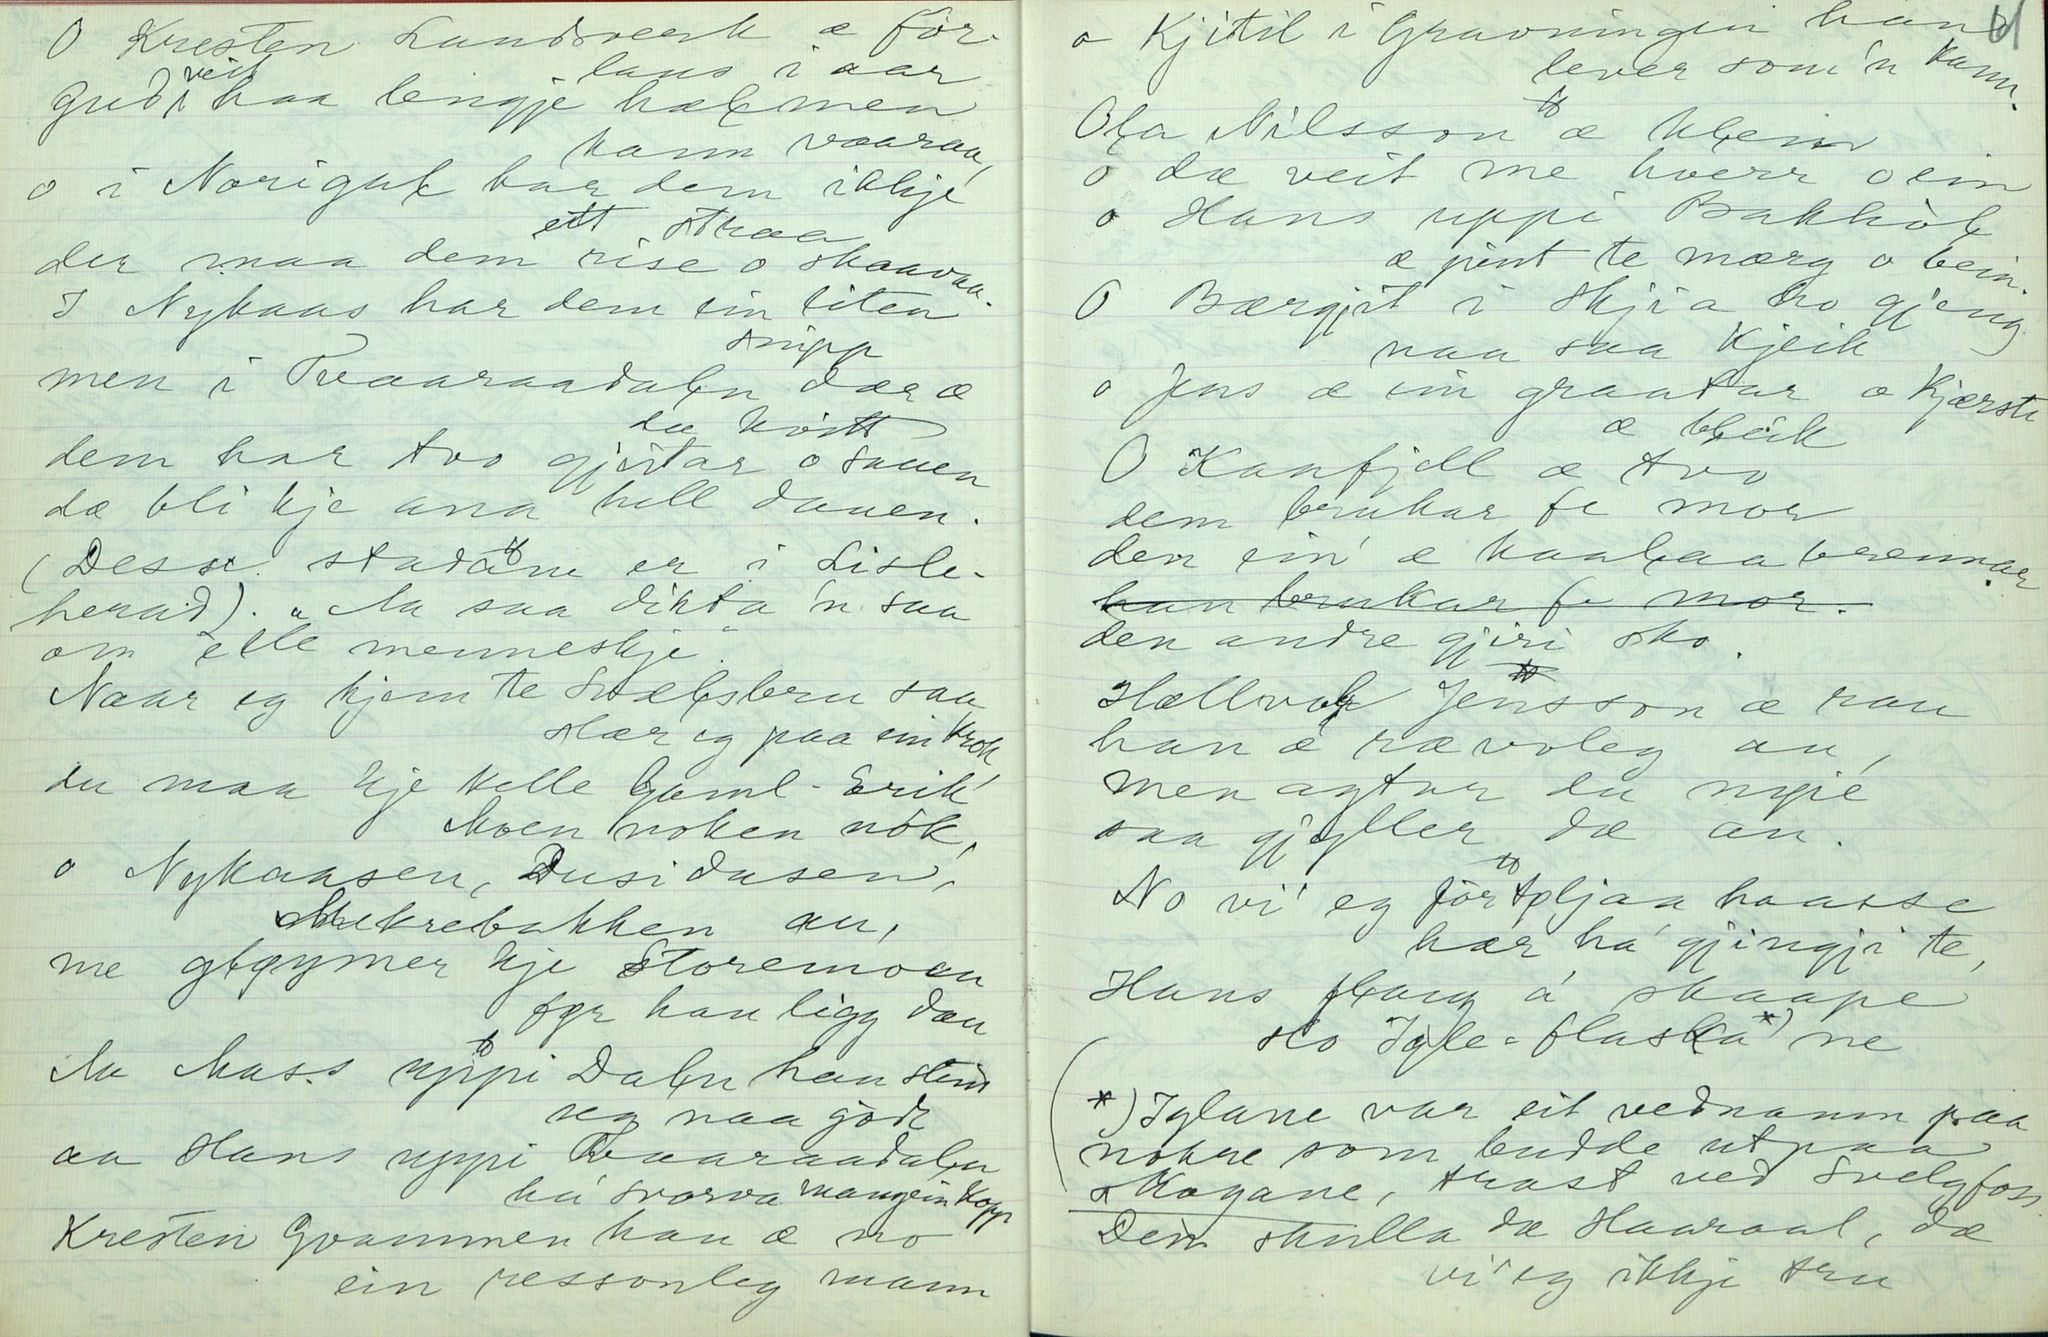 O Kresten Landsverk æ för-
laus i aar
Gud veit haa lengje hæL men
kann vaaraa,
o i NorigaL har dem ikkje
ett straa
der maa dem rise o skaavaa.
I Nykaas har dem ein liten
snipp
men i Tvaaraadalen dær æ
du kvitt
dem har tvo gjeitar o sauen
dæ bli kje ana hell dauen.
(Desse stadane er i Lisle-
herad). "Aa saa dikta 'n saa
om elle menneskje".
Naar eg kjem te Svælgsbru saa
slær eg paa ein krok
du maa kje kelle Gaml-Erik
Moen noken nök,
o Nykaasen, Dusidusen,
bakken au,
me gLøymer kje Storemoen
før han ligg dau
Aa Mass uppi DaLen han stend
seg naa godt
aa Hans uppi Tvaaraadalen
ha svarva mang ein kopp
Kresten Gvammen han æ no
ein ressonleg mann
61
o Kjitil i Gravningen han
lever som 'n kann.
OLa Nilsson æ kLein
o dæ veit me hverr o ein
o Hans uppi BakkhöL
æ pint te mærg o bein.
O Bærgjit i Skjia ho gjeng
naa saa kjeik
o Jens æ ein graatar o Kjærsti
æ bLeik
O Kaafjell æ tvo
dem brukar fe mor
den ein' æ kaaLaabrennar
han brukar fe mor.
den andre gjiri sko.
Hællvor Jensson æ rau
han æ rævoleg au,
men agtar du nyie
saa gjyller dæ au.
No vi' eg förtæljaa haasse
hær ha' gjingji te,
Hans fLaug á skaape
slo Igle-flaska *) ne
*) Iglane var eit vednamn paa
nokre som budde utpaa
skogane, trast ved Svelgfoss.
Dem skulla dæ Haaraal, dæ
vi' eg ikkje tru